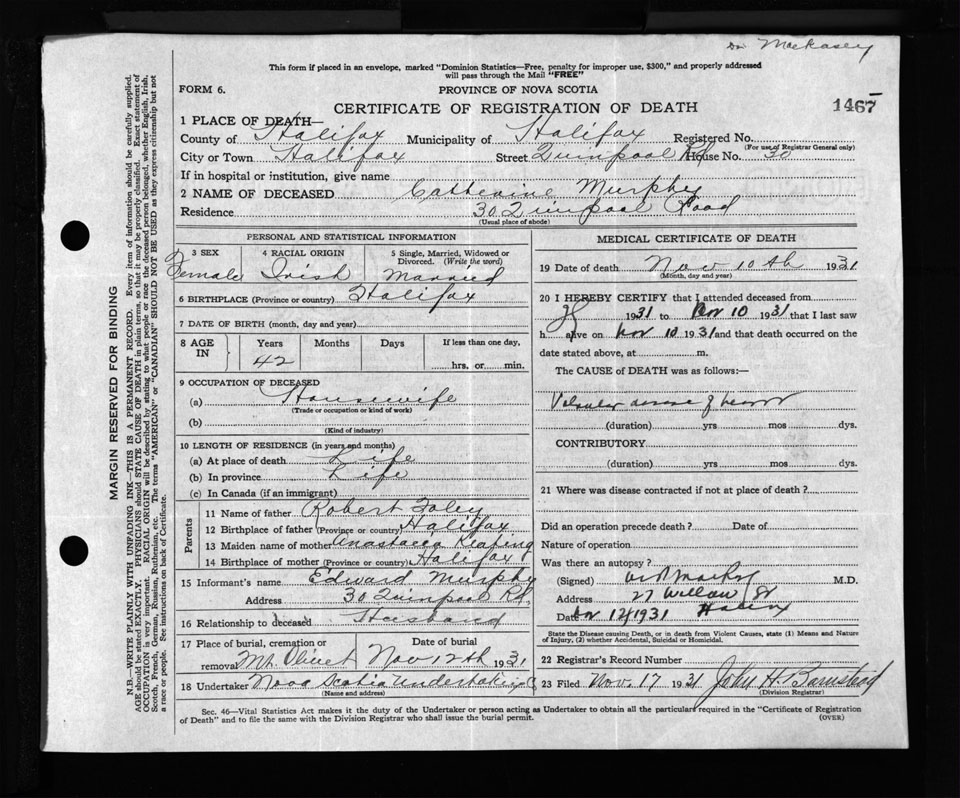 Dr Mackasey
This form if placed in an envelope, marked "Dominion Statistics—Free, penalty for improper use, $300," and properly addressed
will pass through the Mail "FREE"
FORM 6.
PROVINCE OF NOVA SCOTIA
CERTIFICATE OF REGISTRATION OF DEATH
1467
1 PLACE OF DEATH—
County of Halifax Municipality of Halifax Registered No.
(For use of Registrar General only)
City or Town Halifax Street Quinpool Rd House No. 30
If in hospital or institution, give name
2 NAME OF DECEASED Catherine Murphy
Residence 30 Quinpool Road
(Usual place of abode)
PERSONAL AND STATISTICAL INFORMATION
3 SEX 4 RACIAL ORIGIN 5 Single, Married, Widowed or
Divorced. (Write the word)
Female Irish Married
6 BIRTHPLACE (Province or country) Halifax
7 DATE OF BIRTH (month, day and year)
8 AGE IN Years Months Days If less than one day,
42 hrs. or min.
9 OCCUPATION OF DECEASED
(a) Housewife
(Trade or occupation or kind of work)
(b)
(Kind of industry)
10 LENGTH OF RESIDENCE (in years and months)
(a) At place of death Life
(b) In province Life
(c) In Canada (if an immigrant)
Parents
11 Name of father Robert Foley
12 Birthplace of father (Province or country) Halifax
13 Maiden name of mother Anastacia Keaping
14 Birthplace of mother (Province or country) Halifax
15 Informant's name Edward Murphy
Address 30 Quinpool Rd.
16 Relationship to deceased Husband
17 Place of burial, cremation or Date of burial
removal Mt. Olivet Nov 12th 1931
18 Undertaker Nova Scotia Undertaking Co
(Name and address)
MEDICAL CERTIFICATE OF DEATH
19 Date of death Nov 10th 1931
(Month, day and year)
20 I HEREBY CERTIFY that I attended deceased from
1931 to Nov 10 1931 that I last saw
h alive on Nov 10 1931 and that death occurred on the
date stated above, at m.
The CAUSE of DEATH was as follows:—
Valvular disease of heart
(duration) yrs mos dys.
CONTRIBUTORY
(duration) yrs mos dys.
21 Where was disease contracted if not at place of death?
Did an operation precede death? Date of
Nature of operation
Was there an autopsy?
(Signed) M.D.
Address 27 Willow St
Date Nov 12 1931 Halifax
State the Disease causing Death, or in death from Violent Causes, state (1) Means and Nature
of Injury, (2) whether Accidental, Suicidal or Homicidal.
22 Registrar's Record Number
23 Filed Nov. 17 1931 John H. Barnstead
(Division Registrar)
Sec. 46—Vital Statistics Act makes it the duty of the Undertaker or person acting as Undertaker to obtain all the particulars required in the "Certificate of Registration
of Death" and to file the same with the Division Registrar who shall issue the burial permit.
(OVER)
MARGIN RESERVED FOR BINDING
N.B.—WRITE PLAINLY WITH UNFADING INK—THIS IS A PERMANENT RECORD. Every item of information should be carefully supplied.
AGE should be stated EXACTLY. PHYSICIANS should STATE CAUSE OF DEATH in plain terms, so that it may be properly classified. Exact statement of
OCCUPATION is very important. RACIAL ORIGIN will be described by stating to what people or race the deceased person belonged, whether English, Irish,
Scotch, French, German, Russian, Ruthenian, etc. The terms "AMERICAN" or "CANADIAN" SHOULD NOT BE USED as they express citizenship but not
a race or people. See instructions on back of Certificate.